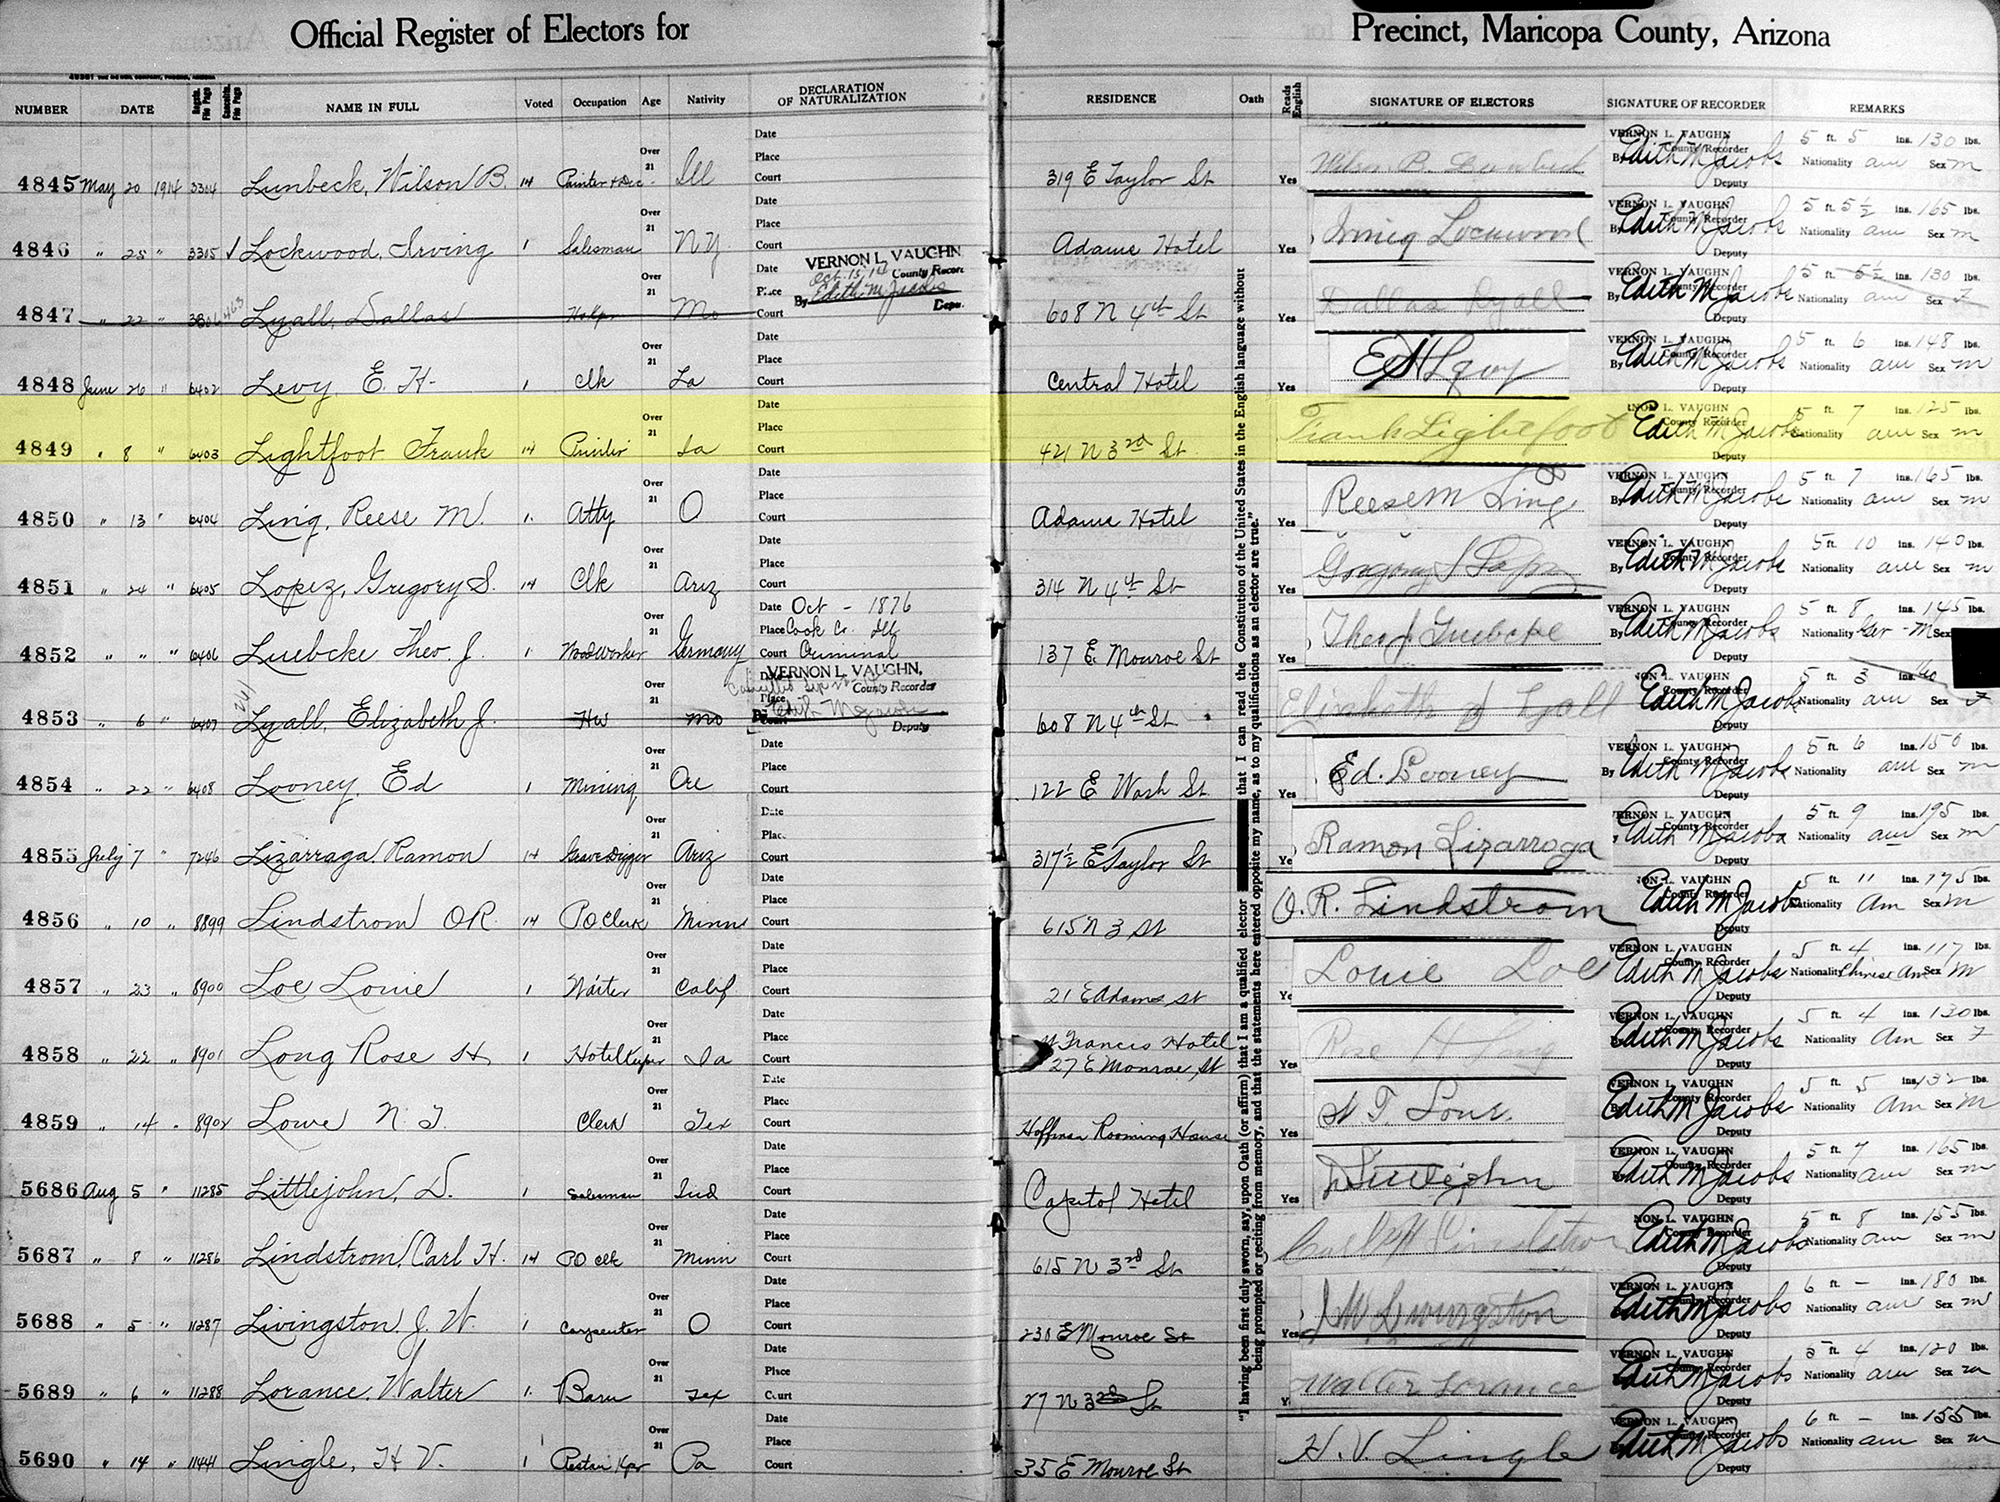 Official Register of Electors for Precinct, Maricopa County, Arizona
NUMBER DATE Registn. File Page Cancelln. File Page NAME IN FULL Voted Occupation Age Nativity DECLARATION OF NATURALIZATION RESIDENCE Oath Reads English SIGNATURE OF ELECTORS SIGNATURE OF RECORDER REMARKS
"I having been first duly sworn, say, upon Oath (or affirm) that I am a qualified elector that I can read the Constitution of the United States in the English language without
being prompted or reciting from memory, and that the statements here entered opposite my name, as to my qualifications as an elector are true."
4845 May 20 1914 3304 Lunbeck, Wilson B. 14 Painter + Dec. Over 21 Ill Date Place Court 319 E Taylor St Yes Wilson B. Lunbeck VERNON L. VAUGHN County Recorder By Edith M Jacobs Deputy 5 ft. 5 ins. 130 lbs. Nationality am Sex m
4846 " 25 " 3305 Lockwood, Irving 1 Salesman Over 21 N.Y. Date Place Court Adams Hotel Yes Irving Lockwood VERNON L. VAUGHN County Recorder Edith M Jacobs Deputy 5 ft. 5 1/2 ins. 165 lbs. Nationality am Sex m
4847 " 22 " 3306 463 Lyall, Dallas Over 21 Mo Date Place Court VERNON L. VAUGHN, County Recorder Oct. 15, 14 By Edith M Jacobs Depu. 608 N 4th St Yes Dallas Lyall VERNON L. VAUGHN County Recorder By Edith M Jacobs Deputy 5 ft. 5 1/2 ins. 130 lbs. Nationality am Sex f
4848 June 26 " 6402 Levy, E. H. 1 Clk Over 21 La Date Place Court Central Hotel Yes E H Levy VERNON L. VAUGHN County Recorder Edith M Jacobs Deputy 5 ft. 6 ins. 148 lbs. Nationality am Sex m
4849 " 8 " 6403 Lightfoot Frank 14 Painter Over 21 Ia Date Place Court 421 N 3rd St Frank Lightfoot NON L. VAUGHN County Recorder Edith M Jacobs Deputy 5 ft. 7 ins. 125 lbs. Nationality am Sex m
4850 " 13 " 6404 Ling, Reese M. 1 Atty Over 21 O Date Place Court Adams Hotel Yes Reese M Ling VERNON L. VAUGHN County Recorder Edith M Jacobs Deputy 5 ft. 7 ins. 165 lbs. Nationality am Sex m
4851 " 24 " 6405 Lopez, Gregory S. 14 Clk Over 21 Ariz Date Place Court 314 N 4th St Yes Gregory S Lopez VERNON L. VAUGHN County Recorder By Edith M Jacobs Deputy 5 ft. 10 ins. 140 lbs. Nationality am Sex m
4852 " " " 6406 Luebcke Theo J. 1 Woodworker Over 21 Germany Date Oct - 1876 Place Cook Co. Ill Court Criminal 137 E. Monroe St Yes Theo J Luebcke VERNON L. VAUGHN County Recorder By Edith M Jacobs Deputy 5 ft. 8 ins. 145 lbs. Nationality Ger - M Sex
4853 " 6 " 6407 241 Lyall, Elizabeth J. Hw Over 21 Mo Date Place Court VERNON L. VAUGHN, County Recorder Cancelled Deputy 608 N 4th St Elizabeth J Lyall NON L. VAUGHN County Recorder Edith M Jacobs Deputy 5 ft. 3 ins. lbs. Nationality am Sex f
4854 " 22 " 6408 Looney, Ed 1 Mining Over 21 Ore Date Place Court 122 E Wash St. Yes Ed. Looney VERNON L. VAUGHN County Recorder By Edith M Jacobs Deputy 5 ft. 6 ins. 150 lbs. Nationality am Sex m
4855 July 7 " 7246 Lizarraga, Ramon 14 Grave Digger Over 21 Ariz Date Place Court 317 1/2 E Taylor St Ye Ramon Lizarraga VERNON L. VAUGHN County Recorder Edith M Jacobs Deputy 5 ft. 9 ins. 195 lbs. Nationality am Sex m
4856 " 10 " 8899 Lindstrom O R. 14 P O Clerk Over 21 Minn Date Place Court 615 N 3 St O. R. Lindstrom NON L. VAUGHN County Recorder Edith M Jacobs Deputy 5 ft. 11 ins. 175 lbs. Nationality Am Sex m
4857 " 23 " 8900 Loe Louie 1 Waiter Over 21 Calif Date Place Court 21 E Adams St Ye Louie Loe VERNON L. VAUGHN County Recorder Edith M Jacobs Deputy 5 ft. 4 ins. 117 lbs. Nationality Chinese Am Sex m
4858 " 22 " 8901 Long Rose H. 1 Hotel Keeper Over 21 Ia Date Place Court St Francis Hotel 27 E Monroe St Yes Rose H Long VERNON L. VAUGHN County Recorder Edith M Jacobs Deputy 5 ft. 4 ins. 120 lbs. Nationality Am Sex F
4859 " 14 " 8902 Lowe N. T. Clerk Over 21 Tex Date Place Court Hoffman Rooming House Yes N. T. Lowe VERNON L. VAUGHN County Recorder Edith M Jacobs Deputy 5 ft. 5 ins. 132 lbs. Nationality Am Sex M
5686 Aug 5 " 11285 Littlejohn, D. 1 Salesman Over 21 Ind Date Place Court Capitol Hotel Yes D Littlejohn VERNON L. VAUGHN County Recorder Edith M Jacobs Deputy 5 ft. 7 ins. 165 lbs. Nationality am Sex m
5687 " 8 " 11286 Lindstrom, Carl H. 14 P O clk Over 21 Minn Date Place Court 615 N 3rd St Carl H Lindstrom NON L. VAUGHN County Recorder Edith M Jacobs Deputy 5 ft. 8 ins. 155 lbs. Nationality am Sex m
5688 " 5 " 11287 Livingston, J. W. 1 Carpenter Over 21 O Date Place Court 230 E Monroe St Yes J W Livingston VERNON L. VAUGHN County Recorder Edith M Jacobs Deputy 6 ft. - ins. 180 lbs. Nationality am Sex m
5689 " 6 " 11288 Lorance, Walter 1 Barn Over 21 Tex Date Place Court 27 N 3rd St Y Walter Lorance VERNON L. VAUGHN County Recorder Edith M Jacobs Deputy 5 ft. 4 ins. 120 lbs. Nationality am Sex m
5690 " 14 " 11441 Lingle, H V. 1 Over 21 Pa Date Place Court 35 E Monroe St H. V. Lingle VERNON L. VAUGHN County Recorder Edith M Jacobs Deputy 6 ft. - ins. 155 lbs. Nationality am Sex m